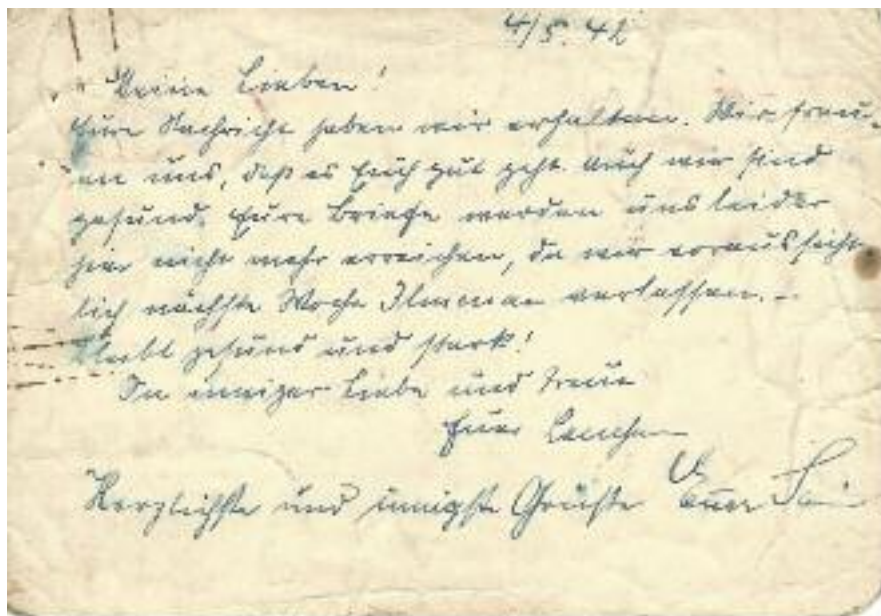 4/5. 42
Meine Lieben!
Eure Nachricht haben wir erhalten. Wir freu-
en uns, daß es Euch gut geht. Auch wir sind
gesund. Eure Briefe werden uns leider
hier nicht mehr erreichen, da wir voraussicht
lich nächste Woche Ilmenau verlassen. –
Bleibt gesund und stark!
In inniger Liebe und Treue
Euer
Herzlichste und innigste Grüße Euer